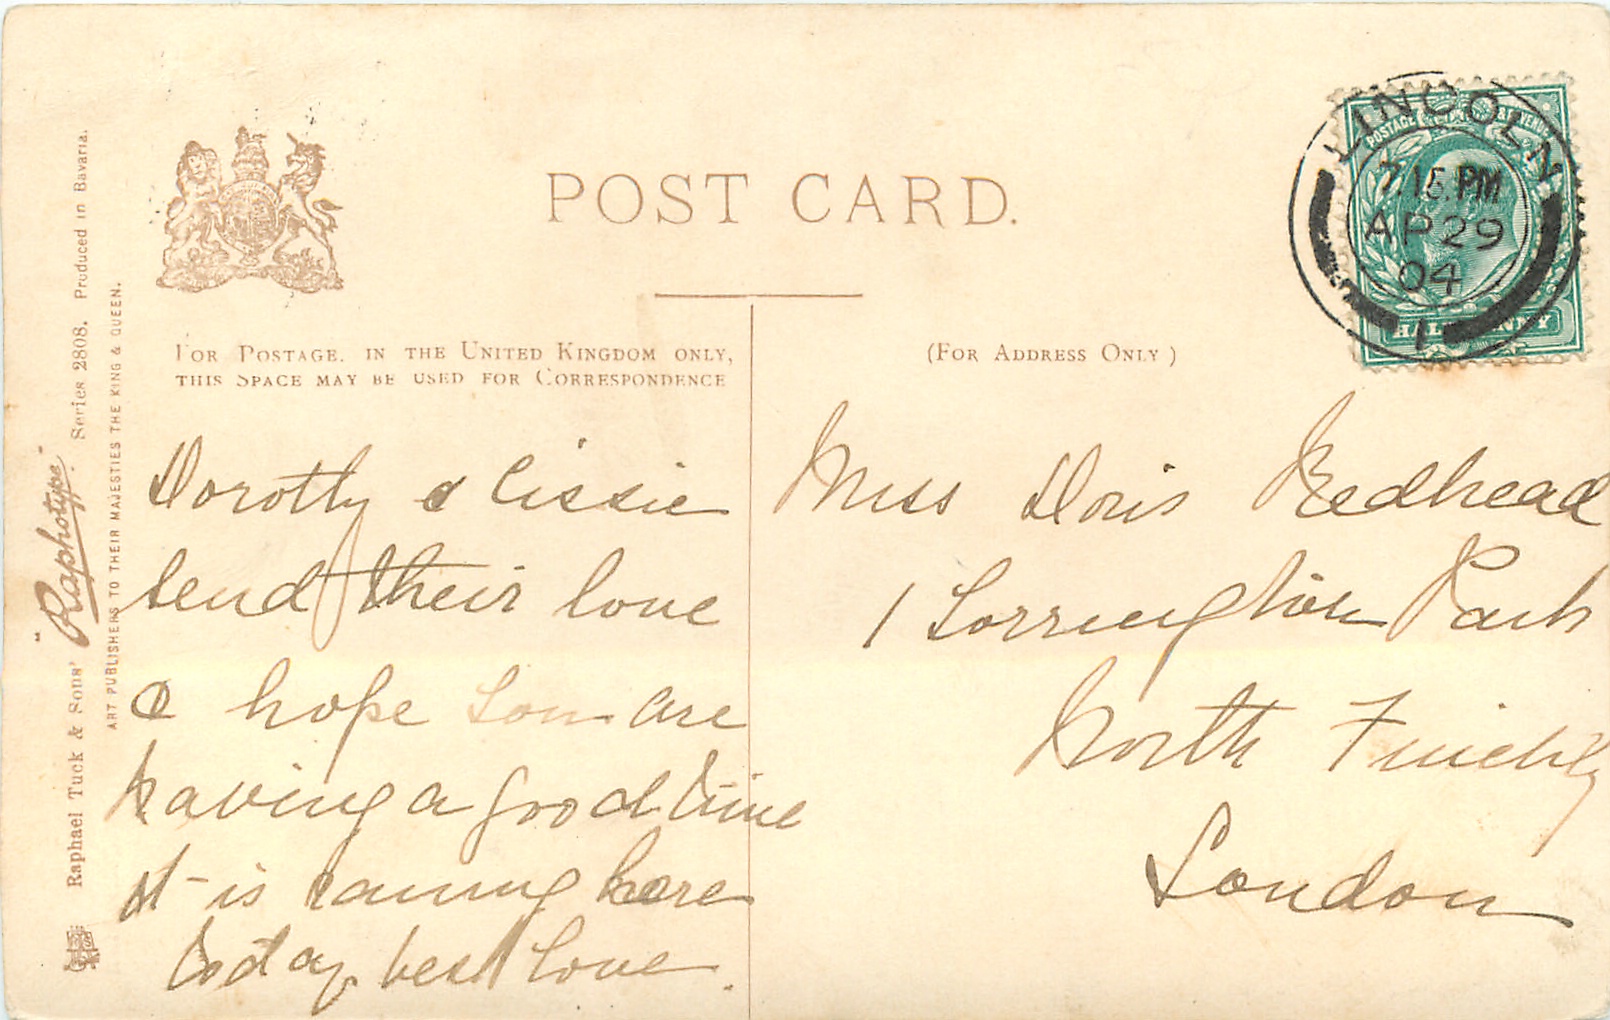 POST CARD.
FOR POSTAGE. IN THE UNITED KINGDOM ONLY,
THIS SPACE MAY BE USED FOR CORRESPONDENCE
(FOR ADDRESS ONLY)
LINCOLN
7 15 PM
AP 29
04
1
POSTAGE & REVENUE
HALFPENNY
Dorothy & Cissie
send their love
& hope you are
having a good time
It is raining here
today best love.
Miss Doris Redhead
1 Torrington Park
North Finchley
London
Raphael Tuck & Sons' "Raphotype" Series 2808. Produced in Bavaria.
ART PUBLISHERS TO THEIR MAJESTIES THE KING & QUEEN.